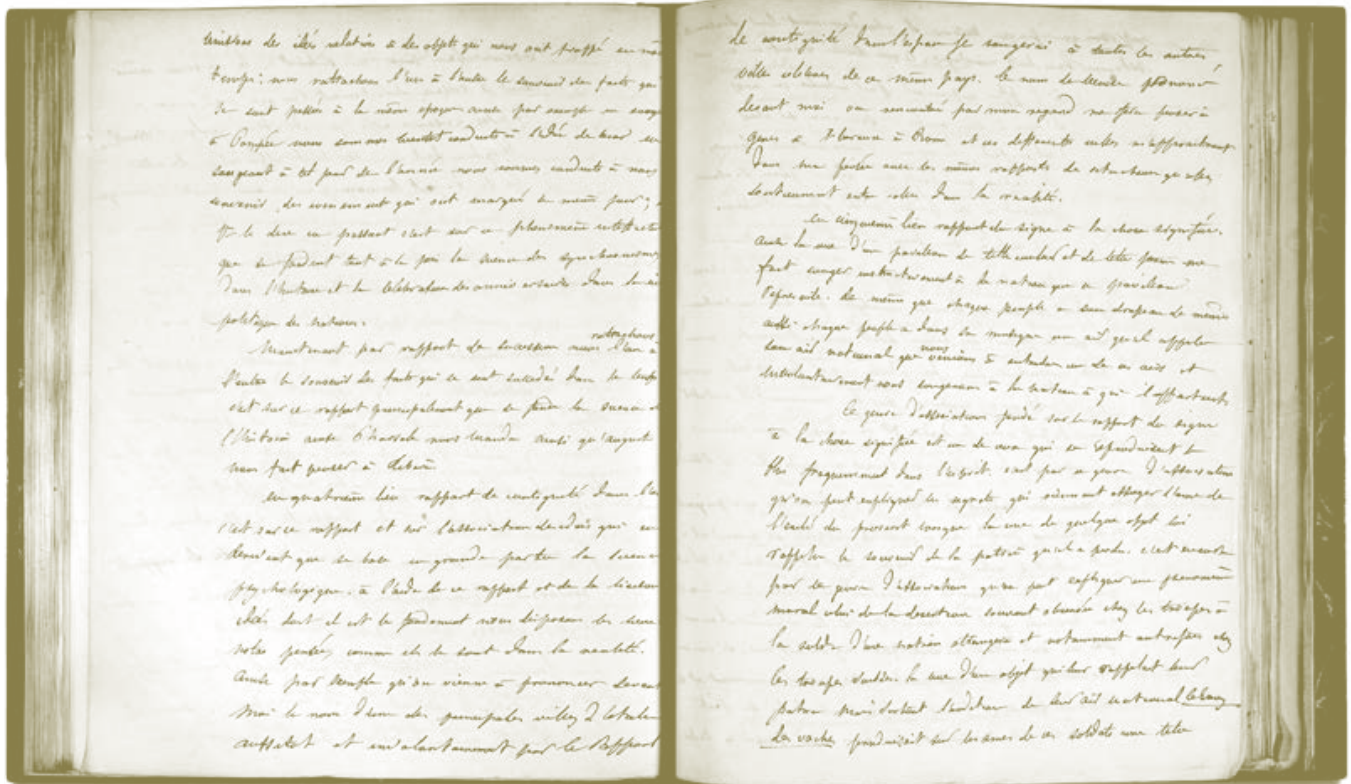 des idées relatives à des objets qui nous ont frappé en même
temps: nous rattachons l'un à l'autre le souvenir des faits qui
se sont passés à la même époque ainsi par exemple en
à Pompée nous sommes bientôt conduits à l'idée de
songeant à tel jour de l'année nous sommes conduits à nous
souvenir des evenements qui ont marqué ce même jour;
le dire en passant c'est sur ce phénomène
que se fondent tout à la fois la science des synchronismes
dans l'histoire et la célébration des dans la vie
politique des nations.
Maintenant par rapport de succession nous rattachons l'un à
l'autre le souvenir des faits qui se sont succédé dans le temps
c'est sur ce rapport principalement que se fonde la science de
l'histoire ainsi nous ainsi qu'auguste
nous fait penser à Tibère.
en quatrième lieu rapport de contiguité dans
c'est sur ce rapport et sur l'association des idées qui en
derivent que se base en grande partie la science
psychologique. à l'aide de ce rapport et de la liaison
d'idées dont il est le fondement nous disposons les
notes pensées comme elles le sont dans la réalité.
Ainsi par exemple qu'on vienne à prononcer devant
moi le nom d'une des principales villes d'Italie
aussitôt et involontairement par le Rapport
de contiguité dans l'espace je songerai à toutes les autres
villes de ce même pays. le nom de prononcé
devant moi ou rencontré par mon regard me fera penser à
Gènes à Florence à Rome et ces différentes villes m'apparaitront
dans ma pensée avec les mêmes rapports de situation qu'elles
soutiennent entre elles dans la réalité.
en cinquième lieu rapport du signe à la chose signifiée.
ainsi la vue d'un pavillon de telle couleur et de telle forme me
fait songer instinctivement à la nation que ce pavillon
représente. De même que chaque peuple a son drapeau de même
aussi chaque peuple a dans sa musique un air qu'il appelle
son air national que nous venions à entendre un de ces airs et
involontairement nous songerons à la nation à qui il appartient.
Ce genre d'association fondé sur le rapport du signe
à la chose signifiée est un de ceux qui se reproduisent le
plus fréquemment dans l'esprit. c'est par ce genre d'association
qu'on peut expliquer les regrets qui viennent assieger l'ame de
l'exilé du proscrit lorsque la vue de quelque objet lui
rappelle le souvenir de la patrie qu'il a perdu. c'est encore
par ce genre d'association qu'on peut expliquer un phénomène
moral celui de la desertion souvent observée chez les troupes à
la solde d'une nation étrangère et notamment autrefois chez
les troupes Suisses. la vue d'un objet qui leur rappelait leur
patrie mais surtout l'audition de leur air national le Ranz
des vaches produisait sur les ames de ces soldats une telle